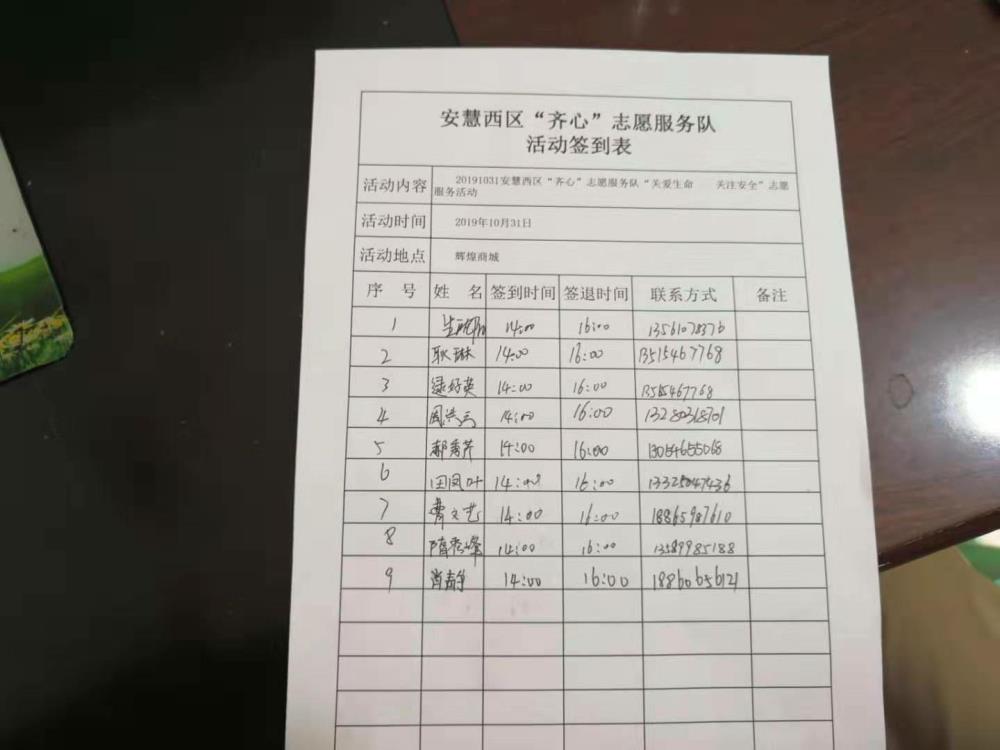 安慧西区“齐心”志愿服务队
活动签到表
活动内容 20191031安慧西区“齐心”志愿服务队“关爱生命 关注安全”志愿
服务活动
活动时间 2019年10月31日
活动地点 辉煌商城
序 号 姓 名 签到时间 签退时间 联系方式 备注
1 14:00 16:00 13561078376
2 耿琳 14:00 16:00 13515467768
3 14:00 16:00 13515467768
4 14:00 16:00 13280318701
5 郝秀芹 14:00 16:00 13054655068
6 田凤叶 14:00 16:00
7 曹文艺 14:00 16:00 18865987610
8 隋秀峰 14:00 16:00 13589985188
9 肖静 14:00 16:00 18860656121